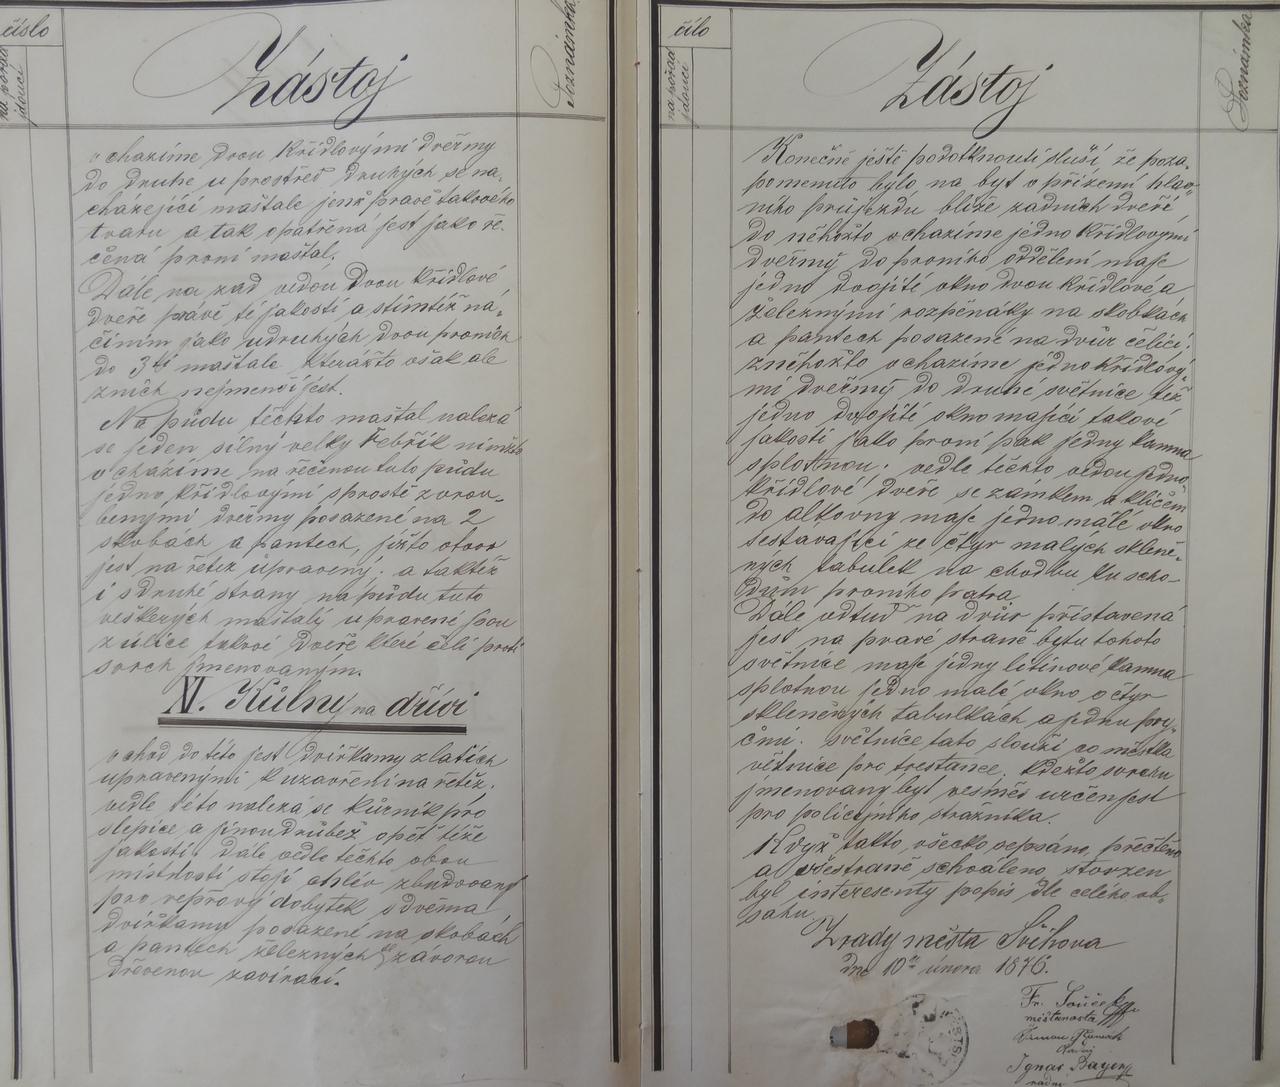 číslo
na pořad
jdoucí
Zástoj
Poznámka
vchazíme dvou křídlovými dveřmy
do druhe u prostřed druhých se na-
cházející maštale jenž pravě takového
tvaru a tak opatřena jest jako ře-
čená první maštal.
Dále na zad vedou dvou křídlové
dveře pravě té jakosti a stimtéž ná-
činím jako udruhých dvou prvních
do 3tí maštale, kterážto však ale
znich nejmenčí jest.
Na půdu těchto maštal nalezá
se jeden silný velky řebřík nimžto
vchazíme na řečenou tuto půdu
jedno křídlovými sprostě zvrou-
benými dveřmy posazené na 2
skobach a pantech, jižto otvor
jest na řetěz úpraveny. a taktéž
i sdruhé strany na půdu tuto
veškerých maštalí upravené jsou
zulice takové dveře které čelí proti
svrch jmenovaným.
XI. Kůlny na dříví
vchod do této jest dvířkamy zlatích
upravenymi kuzavření na řetěz.
vedle této nalezá se kůrník pro
slepice a jinoudrůbež opět téže
jakosti. Dále vedle těchto obou
místností stojí chlév zbudovaný
pro vepřový dobytek s dvěma
dvířkamy posazené na skobách
a pantech železných se závorou
dřevenou zavírací.
čílo
na pořad
jdoucí
Zástoj
Poznámka
Konečně ještě podotknouti sluší, že poza-
pomenuto bylo na byt v přízemí hlav-
ního průjezdu blíže zadních dveří
do něhožto vchazíme jedno křídlovými
dveřmy do prvního oddělení maje
jedno dvojité okno dvou křídlové a
železnymi rozpěnáky na skobkách
a pantech posazené na dvůr čelící.
zněhožto vchazíme jedno křídlový-
mi dveřmy do druhé světnice též
jedno dvojité okno majicí takové
jakosti jako první pak jedny kamna
splotnou. vedle těchto vedou jedno-
křídlové dveře se zámkem a klíčem
do alkovny maje jedno malé okno
sestavající ze čtyr malých skleně-
ných tabulek na chodbu ku scho-
dům prvního patra
Dále odtud na dvůr přistavená
jest na pravé straně bytu tohoto
světnice maje jedny litinové kamna
splotnou jedno malé okno očtyr
skleněných tabulkách a jednu prý-
čni. světnice tato slouží co městka
větnice pro trestance. kdežto svrchu
jmenovany byt vesměs určen jest
pro policejního strážníka.
Když takto všecko sepsáno, přečteno
a všestraně schváleno stvrzen
byl interesenty popis dle celého ob-
sahu.
Zrady města Švihova
dne 10ho února 1876.
Fr. Souček
měšťanosta
radní
Ignac Bayer
radní